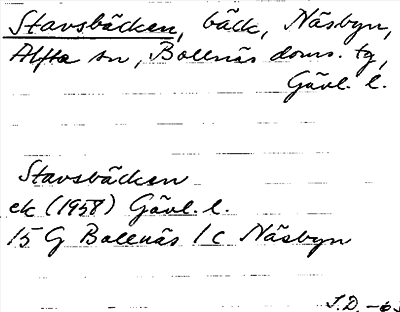 Stavsbäcken, bäck, Näsbyn,
Alfta sn, Bollnäs doms. tg,
Gävl. l.
Stavsbäcken
ek (1958) Gävl. l.
15 G Bollnäs 1 c Näsbyn
S.D. -63